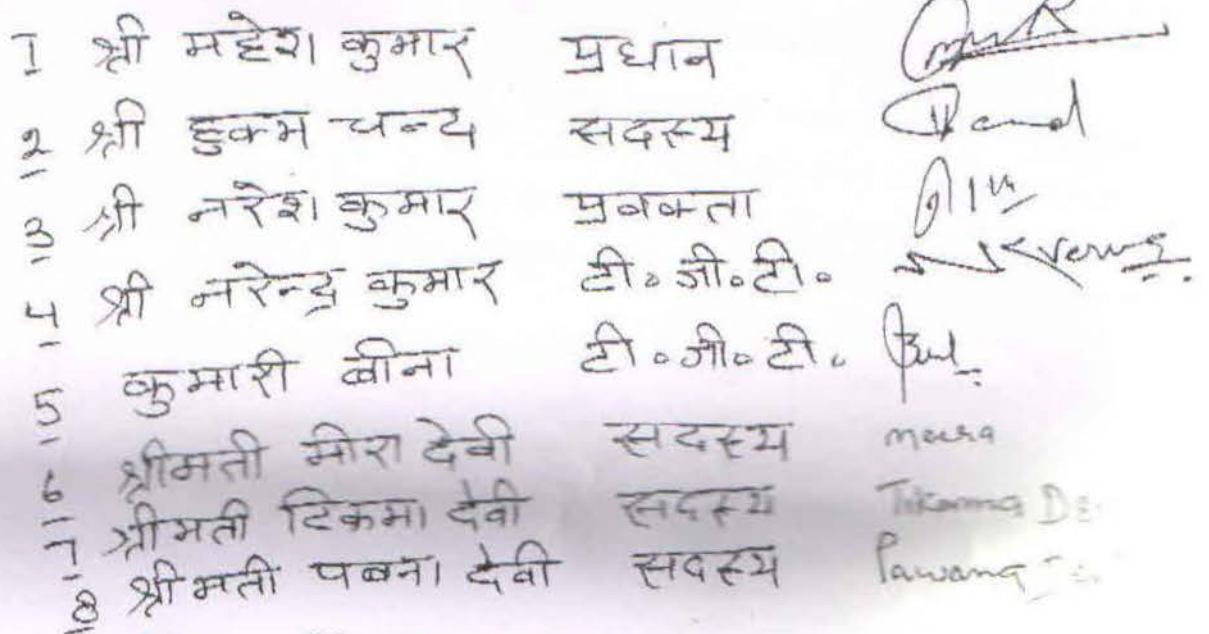 1 श्री महेश कुमार प्रधान
2 श्री हुक्म चन्द सदस्य Chand
3 श्री नरेश कुमार प्रवक्ता
4 श्री नरेन्द्र कुमार टी०जी०टी०
5 कुमारी बीना टी०जी०टी०
6 श्रीमती मीरा देवी सदस्य meera
7 श्रीमती टिकमा देवी सदस्य Tikama De
8 श्रीमती पबना देवी सदस्य Pawana